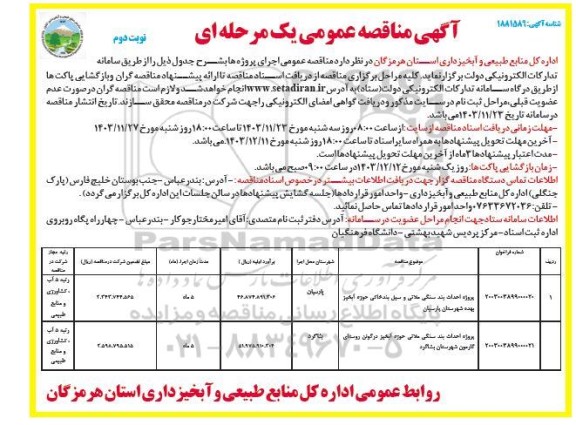 شناسه آگهی: ۱۸۸۱۵۸۶
آگهی مناقصه عمومی یک مرحله ای
نوبت دوم
اداره کل منابع طبیعی و آبخیزداری استان هرمزگان در نظر دارد مناقصه عمومی اجرای پروژه ها بشرح جدول ذیل را از طریق سامانه
تدارکات الکترونیکی دولت برگزار نماید. کلیه مراحل برگزاری مناقصه از دریافت اسناد مناقصه تا ارائه پیشنهاد مناقصه گران و بازگشایی پاکت ها
از طریق درگاه سامانه تدارکات الکترونیکی دولت (ستاد) به آدرس www.setadiran.ir انجام خواهد شد و لازم است مناقصه گران در صورت عدم
عضویت قبلی، مراحل ثبت نام در سایت مذکور و دریافت گواهی امضای الکترونیکی را جهت شرکت در مناقصه محقق سازند. تاریخ انتشار مناقصه
در سامانه تاریخ ۱۴۰۳/۱۱/۲۳ می باشد.
-مهلت زمانی دریافت اسناد مناقصه از سایت: از ساعت ۰۸:۰۰ روز سه شنبه مورخ ۱۴۰۳/۱۱/۲۳ تا ساعت ۱۸:۰۰ روز شنبه مورخ ۱۴۰۳/۱۱/۲۷
- آخرین مهلت تحویل پیشنهادها به همراه سایر اسناد تا ساعت ۱۸:۰۰ روز شنبه مورخ ۱۴۰۳/۱۲/۱۱ می باشد.
-مدت اعتبار پیشنهادها ۳ ماه از آخرین مهلت تحویل پیشنهادها است.
-زمان بازگشایی پاکت ها: روز یک شنبه مورخ ۱۴۰۳/۱۲/۱۲ در ساعت ۰۹:۰۰ صبح می باشد.
اطلاعات تماس دستگاه مناقصه گزار جهت دریافت اطلاعات بیشتر در خصوص اسناد مناقصه: - آدرس: بندرعباس - جنب بوستان خلیج فارس (پارک
جنگلی) اداره کل منابع طبیعی و آبخیزداری - واحد امور قراردادها (جلسه گشایش پیشنهادها در سالن جلسات این اداره کل برگزار می گردد).
-تلفن: ۰۷۶۳۳۶۷۲۰۳۶ واحد امور قراردادها تماس حاصل نمائید.
اطلاعات سامانه ستاد جهت انجام مراحل عضویت در سامانه: آدرس دفتر ثبت نام متصدی: آقای امیر مختار جوکار - بندرعباس - چهارراه پگاه روبروی
اداره ثبت اسناد- مرکز پردیس شهید بهشتی - دانشگاه فرهنگیان
ردیف شماره فراخوان موضوع مناقصه شهرستان محل اجرا برآورد اولیه (ریال) مدت زمان اجرا (ماه) مبلغ تضمین شرکت در مناقصه (ریال) رتبه مجاز شرکت در مناقصه
۱ ۲۰۰۳۰۰۳۸۹۹۰۰۰۰۲۰ پروژه احداث بند سنگی ملاتی و سیل بند خاکی حوزه آبخیز پهنه شهرستان پارسیان پارسیان ۵ ماه رتبه ۵ آب، کشاورزی و منابع طبیعی
۲ ۲۰۰۳۰۰۳۸۹۹۰۰۰۰۲۱ پروژه احداث بند سنگی ملاتی حوزه آبخیز شهرستان بشاگرد بشاگرد ۵ ماه رتبه ۵ آب، کشاورزی و منابع طبیعی
روابط عمومی اداره کل منابع طبیعی و آبخیزداری استان هرمزگان